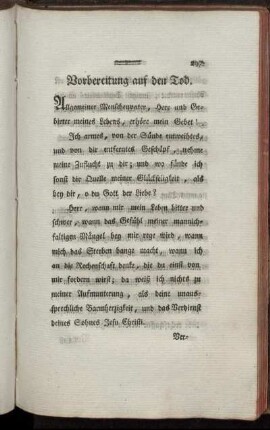 Vorbereitung auf den Tod.
Allgemeiner Menschenvater, Herr und Ge-
bieter meines Lebens, erhöre mein Gebet!
Ich armes, von der Sünde entweihtes,
und von dir entferntes Geschöpf, nehme
meine Zuflucht zu dir; und wo fände ich
sonst die Quelle meiner Glückseligkeit, als
bey dir, o du Gott der Liebe?
Herr, wann mir mein Leben bitter und
schwer, wann das Gefühl meiner mannich-
faltigen Mängel bey mir rege wird, wann
mich das Sterben bange macht, wann ich
an die Rechenschaft denke, die du einst von
mir fordern wirst; da weiß ich nichts zu
meiner Aufmunterung, als deine unaus-
sprechliche Barmherzigkeit, und das Verdienst
deines Sohnes Jesu Christi.
Ver-